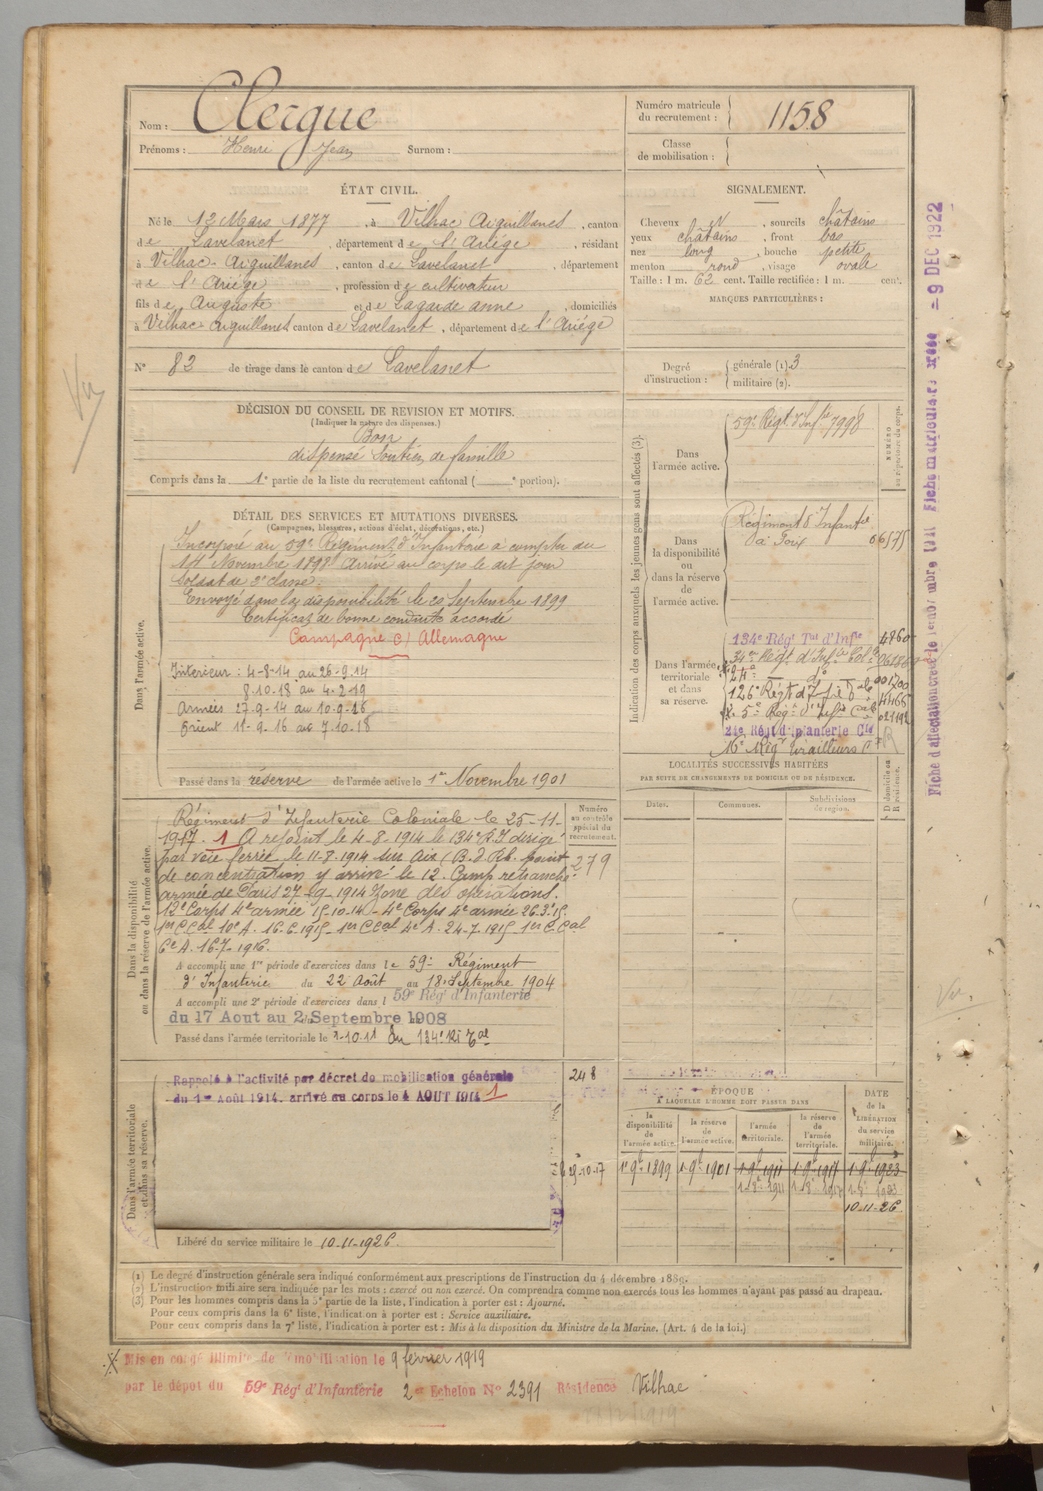 Nom : Clergue
Prénoms : Henri Jean Surnom :
Numéro matricule du recrutement : 1158
Classe de mobilisation :
ÉTAT CIVIL.
Né le 12 Mars 1877, à Vilhac Aiguillanes, canton
de Lavelanet, département de l'Ariège, résidant
à Vilhac-Aiguillanes, canton de Lavelanet, département
de l'Ariège, profession de cultivateur
fils de Auguste et de Lagarde anne, domiciliés
à Vilhac-Aiguillanes canton de Lavelanet, département de l'Ariège
N° 82 de tirage dans le canton de Lavelanet
SIGNALEMENT.
Cheveux et, sourcils châtains
yeux châtains, front bas
nez long, bouche petite
menton rond, visage ovale
Taille : 1 m. 62 cent. Taille rectifiée : 1 m. cent.
MARQUES PARTICULIÈRES :
Degré d'instruction : générale (1). 3
militaire (2).
DÉCISION DU CONSEIL DE REVISION ET MOTIFS.
(Indiquer la nature des dispenses.)
Bon
dispensé Soutien de famille
Compris dans la 1e partie de la liste du recrutement cantonal ( e portion).
DÉTAIL DES SERVICES ET MUTATIONS DIVERSES.
(Campagnes, blessures, actions d'éclat, décorations, etc.)
Dans l'armée active.
Incorporé au 59e Régiment d'Infanterie à compter du
14 Novembre 1898 Arrivé au corps le dit jour
Soldat de 2e classe.
Envoyé dans la disponibilité le 20 Septembre 1899
Certificat de bonne conduite accordé
Campagne c/ Allemagne
Intérieur : 4-8-14 au 26-9-14
8.10.18 au 4-2-19
Armées 27-9-14 au 10-9-16
Orient 11-9-16 au 7-10-18
Passé dans la réserve de l'armée active le 1er Novembre 1901
Dans la disponibilité ou dans la réserve de l'armée active.
Numéro au contrôle spécial du recrutement.
279
Régiment d'Infanterie Coloniale le 25-11-
1917. 1 A rejoint le 4-8-1914 le 134e R.I dirigé
par voie ferrée le 11-8-1914 sur Aix (B.d.Rh. point
de concentration y arrivé le 12. Camp retranché
armée de Paris 27-9-1914 Zone des opérations.
12e Corps 4e armée 15-10-14 - 4e Corps 4e armée 26.3.15.
1er C Cal 10e A. 16.6.1915 1er C Cal 4e A. 24-7.1915 1er C Cal
6e A. 16-7-1916.
A accompli une 1re période d'exercices dans le 59e Régiment
d'Infanterie du 22 Août au 18 Septembre 1904
A accompli une 2e période d'exercices dans l 59e Rég' d'Infanterie
du 17 Aout au 2 Septembre 1908
Passé dans l'armée territoriale le 1-10.11 Au 134e RI Tal
Dans l'armée territoriale et dans sa réserve.
Rappelé à l'activité par décret de mobilisation générale
du 1er Août 1914, arrivé au corps le 4 AOUT 1914 1
248
29-10-17
Libéré du service militaire le 10-11-1926.
Indication des corps auxquels les jeunes gens sont affectés (3).
NUMÉRO au répertoire du corps.
Dans l'armée active. 59e Régt d'Infie 7998
Dans la disponibilité ou dans la réserve de l'armée active.
Régiment d'Infantie
à Foix 06575
Dans l'armée territoriale et dans sa réserve.
134e Régt Tal d'Infie 4860
34e Régt d'Infie Col
24e do 001700
126e Régt d'Infie 4465
5e Régt d'Infie Cale 021192
24e Régt d'Infanterie Cle
16e Régt Tirailleurs
LOCALITÉS SUCCESSIVES HABITÉES
PAR SUITE DE CHANGEMENTS DE DOMICILE OU DE RÉSIDENCE.
D domicile ou R résidence.
Dates. Communes. Subdivisions de région.
ÉPOQUE
À LAQUELLE L'HOMME DOIT PASSER DANS
la disponibilité de l'armée active. la réserve de l'armée active. l'armée territoriale. la réserve de l'armée territoriale. DATE de la LIBÉRATION du service militaire.
1er 9bre 1899 1-9bre 1901 1-9bre 1911 1-9bre 1917 1-9bre 1923
1-8-1911 1-8-1917 1-8-1923
10-11-26
(1) Le degré d'instruction générale sera indiqué conformément aux prescriptions de l'instruction du 4 décembre 1889.
(2) L'instruction militaire sera indiquée par les mots : exercé ou non exercé. On comprendra comme non exercés tous les hommes n'ayant pas passé au drapeau.
(3) Pour les hommes compris dans la 5e partie de la liste, l'indication à porter est : Ajourné.
Pour ceux compris dans la 6e liste, l'indication à porter est : Service auxiliaire.
Pour ceux compris dans la 7e liste, l'indication à porter est : Mis à la disposition du Ministre de la Marine. (Art. 4 de la loi.)
Mis en congé illimité de démobilisation le 9 février 1919
par le dépôt du 59e Régt d'Infanterie 2e Echelon N° 2391 Résidence Vilhac
Vu
Vu.
- 9 DEC 1922